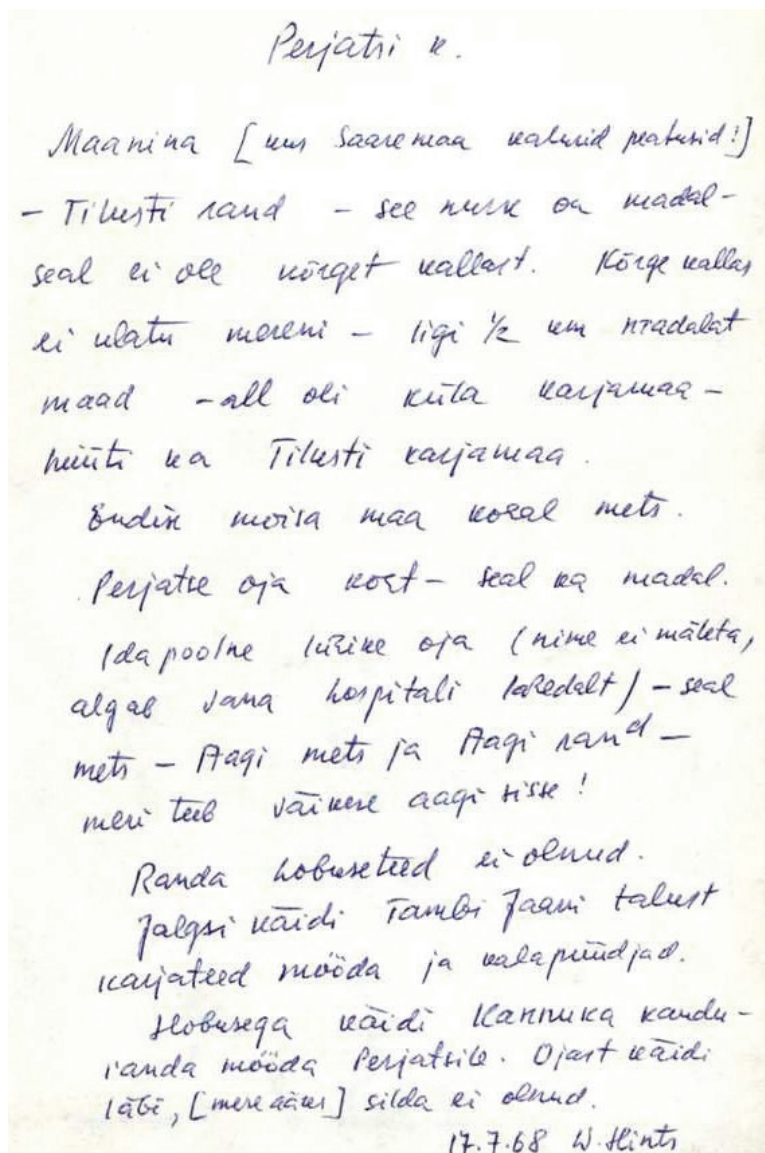 Perjatsi k.
Maanina [kus Saaremaa kalurid peatusid!]
- Tilusti rand - see nurk on madal-
seal ei ole kõrget kallast. Kõrge kallas
ei ulatu mereni - ligi 1/2 km madalat
maad - all oli küla karjamaa -
hüüti ka Tilusti karjamaa.
Endise mõisa maa koral mets.
Perjatse oja koht - seal ka madal.
Ida poolne lühike oja (nime ei mäleta,
algab vana hospitali lähedalt) - seal
mets - Aagi mets ja Aagi rand -
meri teeb väikese aagi sisse!
Randa hobuseteed ei olnud.
Jalgsi käidi Tambi Jaani talust
karjateed mööda ja kalapüüdjad.
Hobusega käidi Kannuka kaudu -
randa mööda Perjatsile. Ojast käidi
läbi, [mere ääres] silda ei olnud.
17.7.68 W. Hints